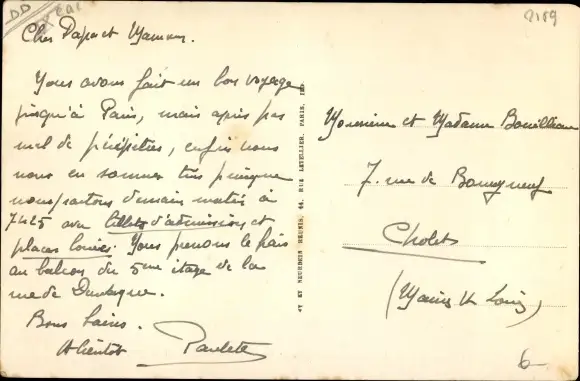 DD
2189
Cher Papa et Maman.
Nous avons fait un bon voyage
jusqu'à Paris, mais après pas
mal de péripéties, enfin nous
nous en sommes très puisque
nous partons demain matin à
7h25 avec billets d'admission et
places louées. Nous prenons le frais
au balcon du 5me étage de la
rue de
Bons baisers.
A bientôt Paulette
RUE LETELLIER, PARIS,
Monsieur et Madame
7. rue de Bourgneuf
Cholet
(Maine et Loire)
6-